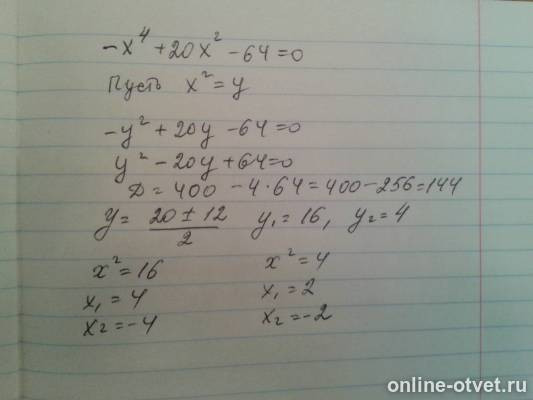 -x⁴ + 20x² - 64 = 0
Пусть x² = y
-y² + 20y - 64 = 0
y² - 20y + 64 = 0
Д = 400 - 4·64 = 400 - 256 = 144
y = (20 ± 12)/2  y₁ = 16, y₂ = 4
x² = 16  x² = 4
x₁ = 4  x₁ = 2
x₂ = -4  x₂ = -2
online-otvet.ru